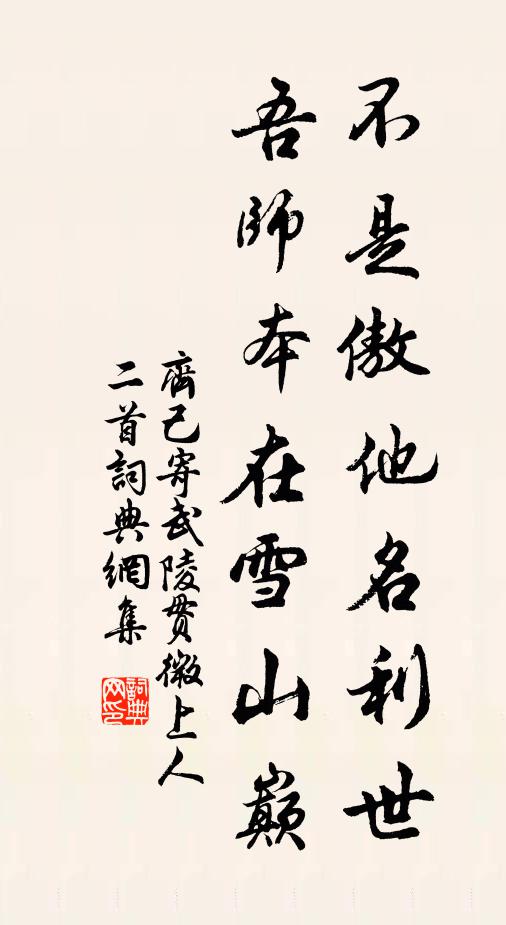 不是傲他名利世
吾師本在雪山巔
齊己寄武陵貫微上人
二首詞典網集
詞典
网印